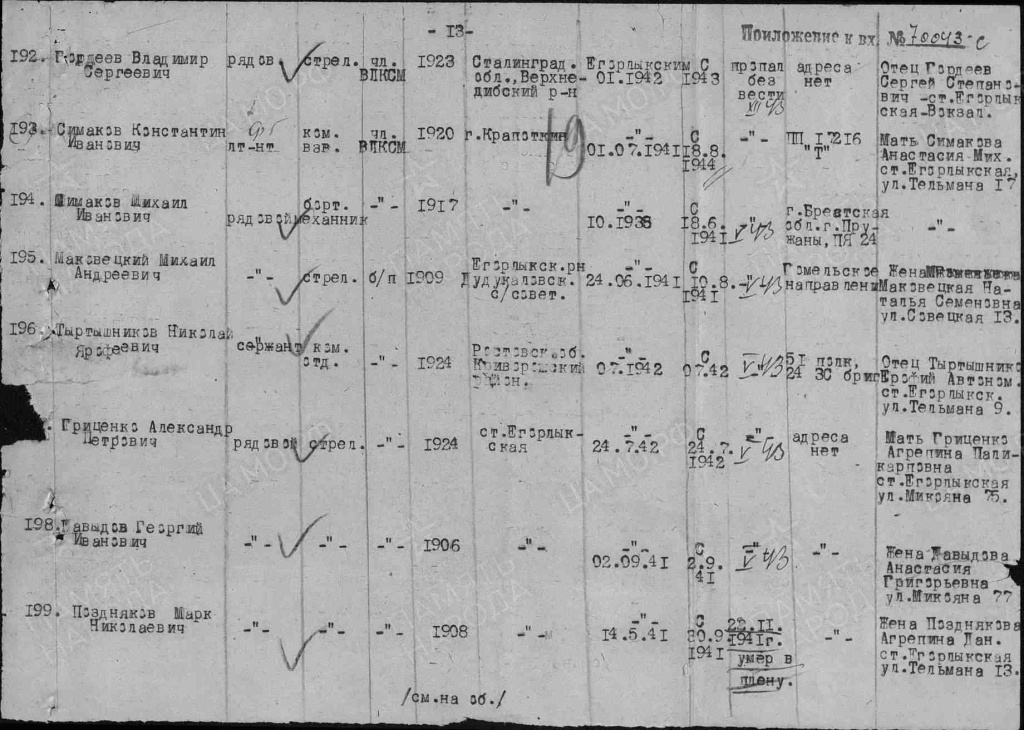 - 13-
Приложение к вх. № 70043 с
192. Гордеев Владимир Сергеевич рядов. стрел. чл. ВЛКСМ 1923 Сталинград. обл., Верхне- дибский р-н Егорлыкским 01.1942 С 1943 пропал без вести XII 43 адреса нет Отец Гордеев Сергей Степано- вич -ст.Егорлык ская-Вокзал.
193. Симаков Константин Иванович лт-нт ком. взв. чл. ВЛКСМ 1920 г.Крапоткин -"- 01.07.1941 С 18.8. 1944 -"- ПП 17216 "Т" Мать Симакова Анастасия Мих. ст.Егорлыкская, ул.Тельмана 17
19
194. Симаков Михаил Иванович рядовой борт. механник -"- 1917 -"- -"- 10.1938 С 18.6. 1941 V 43 г.Брестская обл.г.Пру- жаны, ПЯ 24 -"-
195. Маковецкий Михаил Андреевич -"- стрел. б/п 1909 Егорлыкск.рн Дудукаловск. с/совет. -"- 24.06.1941 С 10.8. 1941 -"- V 43 Гомельское направлени Жена Маковецкая На- талья Семеновна ул.Совецкая 13.
196. Тыртышников Николай Ярофеевич сержант ком. отд. -"- 1924 Ростовск.об. Криворожский район. -"- 07.1942 С 07.42 V 43 51 полк, 24 ЗС бриг Отец Тыртышнико Ерофий Автоном. ст.Егорлыкск. ул.Тельмана 9.
. Гриценко Александр Петрович рядовой стрел. -"- 1924 ст.Егорлык- ская -"- 24.7.42 С 24.7. 1942 -"- V 43 адреса нет Мать Гриценко Агрепина Пали- карповна ст.Егорлыкская ул.Микояна 75.
198. Давыдов Георгий Иванович -"- -"- -"- 1906 -"- -"- 02.09.41 С 2.9. 41 -"- V 43 -"- Жена Давыдова Анастасия Григорьевна ул.Микояна 77
199. Поздняков Марк Николаевич -"- -"- -"- 1908 -"- -"- 14.5.41 С 30.9 1941 22.11. 1941г. умер в плену. -"- Жена Позднякова Агрепина Дан. ст.Егорлыкская ул.Тельмана 13.
/см.на об./